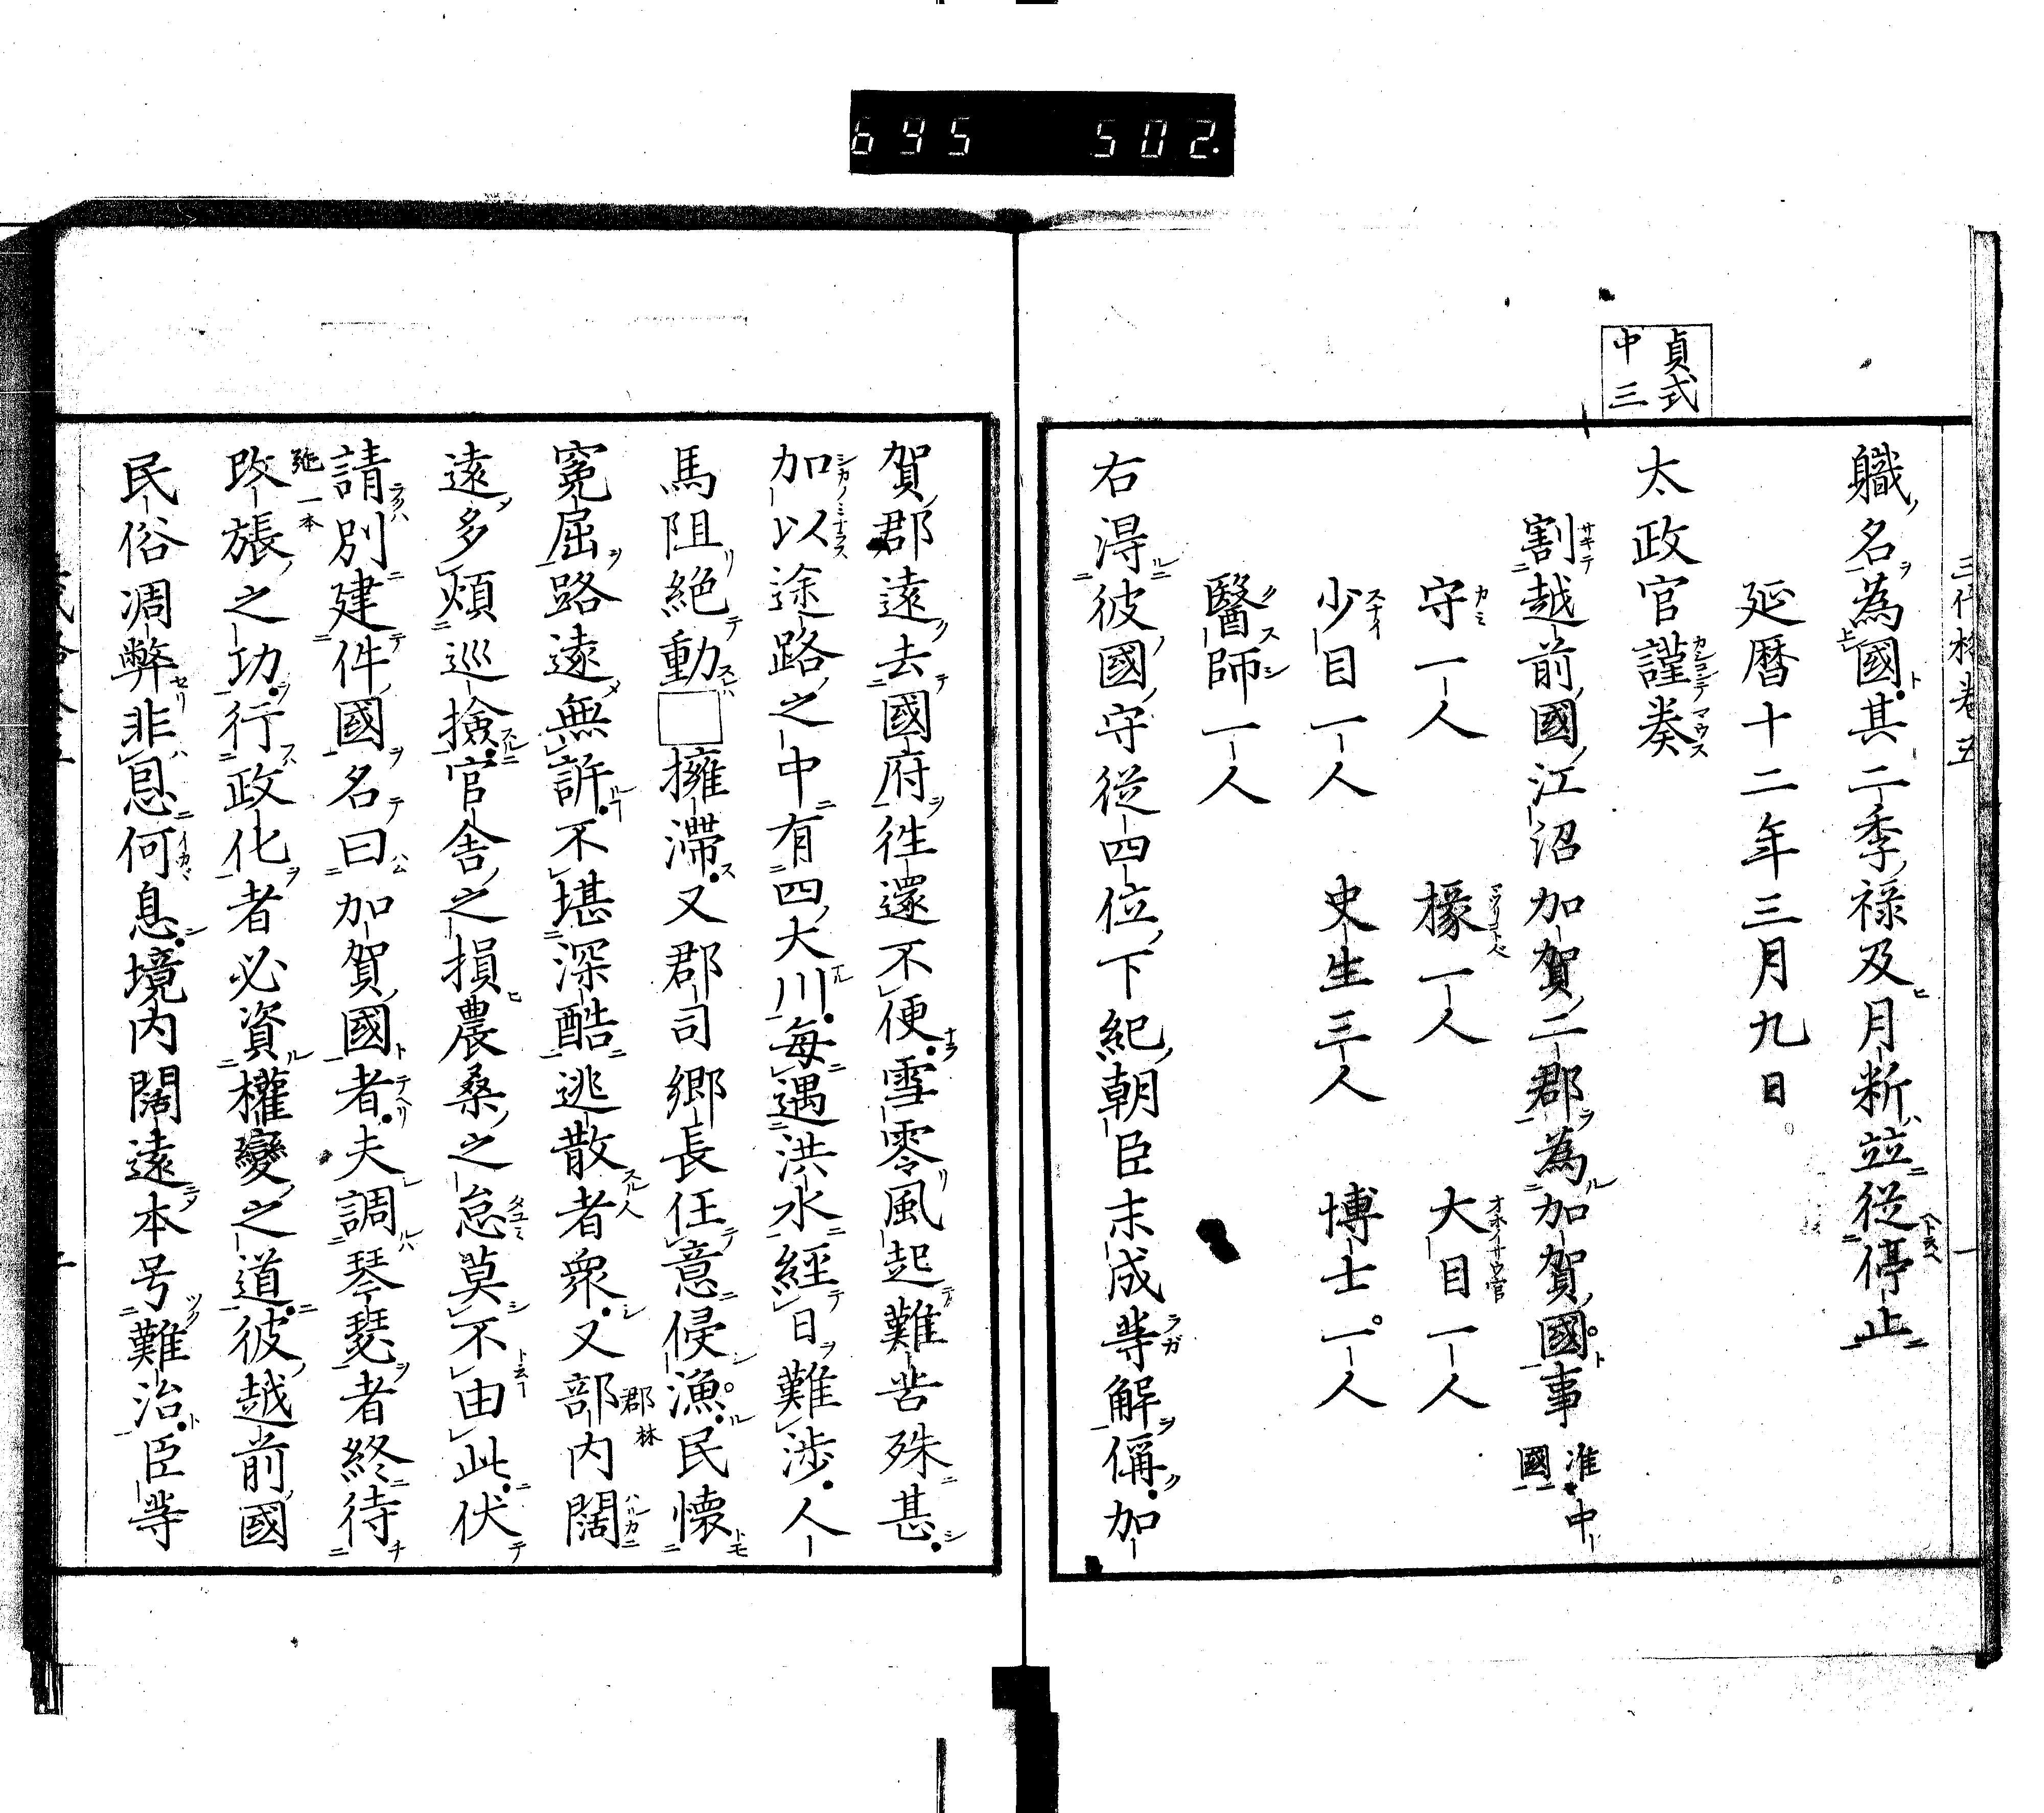 695 502.
貞式
中三
三代格卷五
職名為國其二季禄及月䉼並從停止
延暦十二年三月九日
太政官謹奏
割越前國江沼加賀二郡為加賀國事 准中國
守一人 掾一人 大目一人
少目一人 史生三人 博士一人
醫師一人
右得彼國守從四位下紀朝臣末成等解偁加
賀郡遠去國府往還不便雪零風起難苦殊甚
加以途路之中有四大川毎遇洪水經日難渉人
馬阻絶動□擁滯又郡司郷長任意侵漁民懷
寃屈路遠無訴不堪深酷逃散者衆又部内闊
郡林
遠多煩巡撿官舎之損農桑之怠莫不由此伏
請別建件國名曰加賀國者夫調琴瑟者終待
弛一本
改張之功行政化者必資權變之道彼越前國
民俗凋弊非息何息境内闊遠本号難治臣等